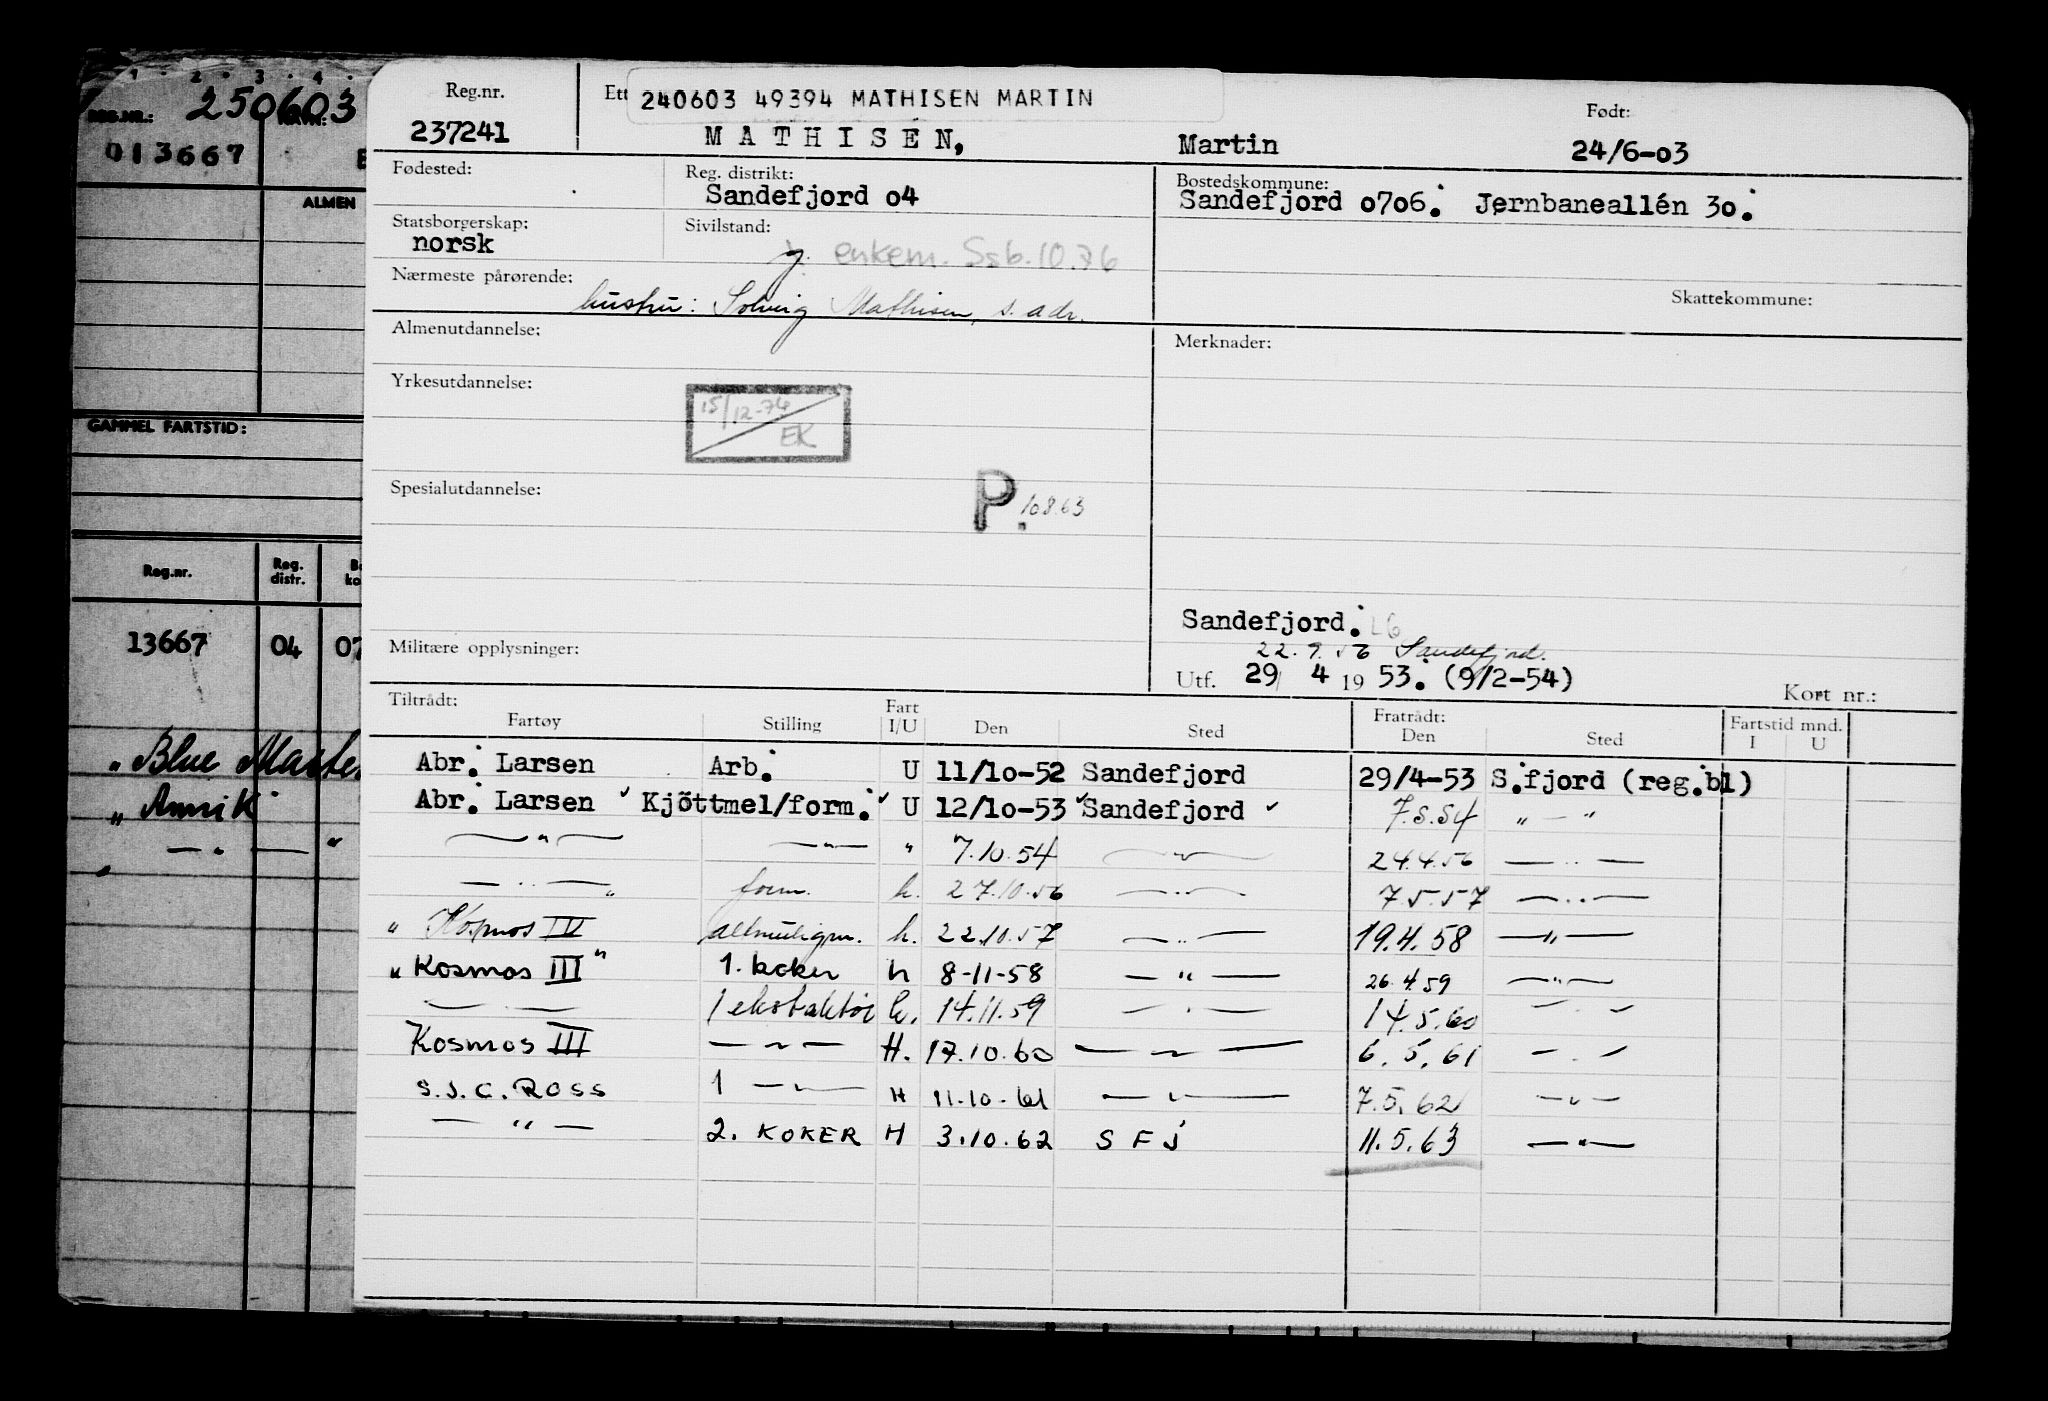 1 2 3 4
REG.NR.: 250603
013667
ALMEN
GAMMEL FARTSTID:
Reg.nr. Reg. distr.
13667 04 07
" Blue Maste
" Annik
— " — "
Reg.nr. Ett 240603 49394 MATHISEN MARTIN Født:
237241 MATHISEN, Martin 24/6-03
Fødested: Reg. distrikt: Bostedskommune:
Sandefjord o4 Sandefjord o7o6. Jernbaneallén 3o.
Statsborgerskap: Sivilstand:
norsk g. enkem. Ssb. 10.76
Nærmeste pårørende: Skattekommune:
hustru: Solveig Mathisen, s. adr.
Almenutdannelse: Merknader:
Yrkesutdannelse:
15/12-74
EK
Spesialutdannelse: P. 10863
Sandefjord. LG
Militære opplysninger: 22.9.56 Sandefjord.
Utf. 29 4 19 53. (9/2-54)
Kort nr.:
Tiltrådt: Fart Fratrådt: Fartstid mnd.
Fartøy Stilling I/U Den Sted Den Sted I U
Abr. Larsen Arb. U 11/1o-52 Sandefjord 29/4-53 S.fjord (reg.bl)
Abr. Larsen Kjöttmel/form. U 12/1o-53 Sandefjord 7.5.54 " — "
— " — — " — " 7.10.54 — " — 24.4.56 — " —
— " — " form. h. 27.10.56 — " — 7.5.57 — " —
" Kosmos IV altmuligm. h. 22.10.57 — " — 19.4.58 — " —
" Kosmos III " 1. koker h 8-11-58 — " — 26.4.59 — " —
— — 1 ekstraktør h. 14.11.59 — " — 14.5.60 — " —
Kosmos III — " — H. 17.10.60 — " — 6.5.61 — " —
S.J.C. ROSS 1 — " — H 11.10.61 — " — 7.5.62 — " —
— " — 2. KOKER H 3.10.62 SFJ 11.5.63 — " —